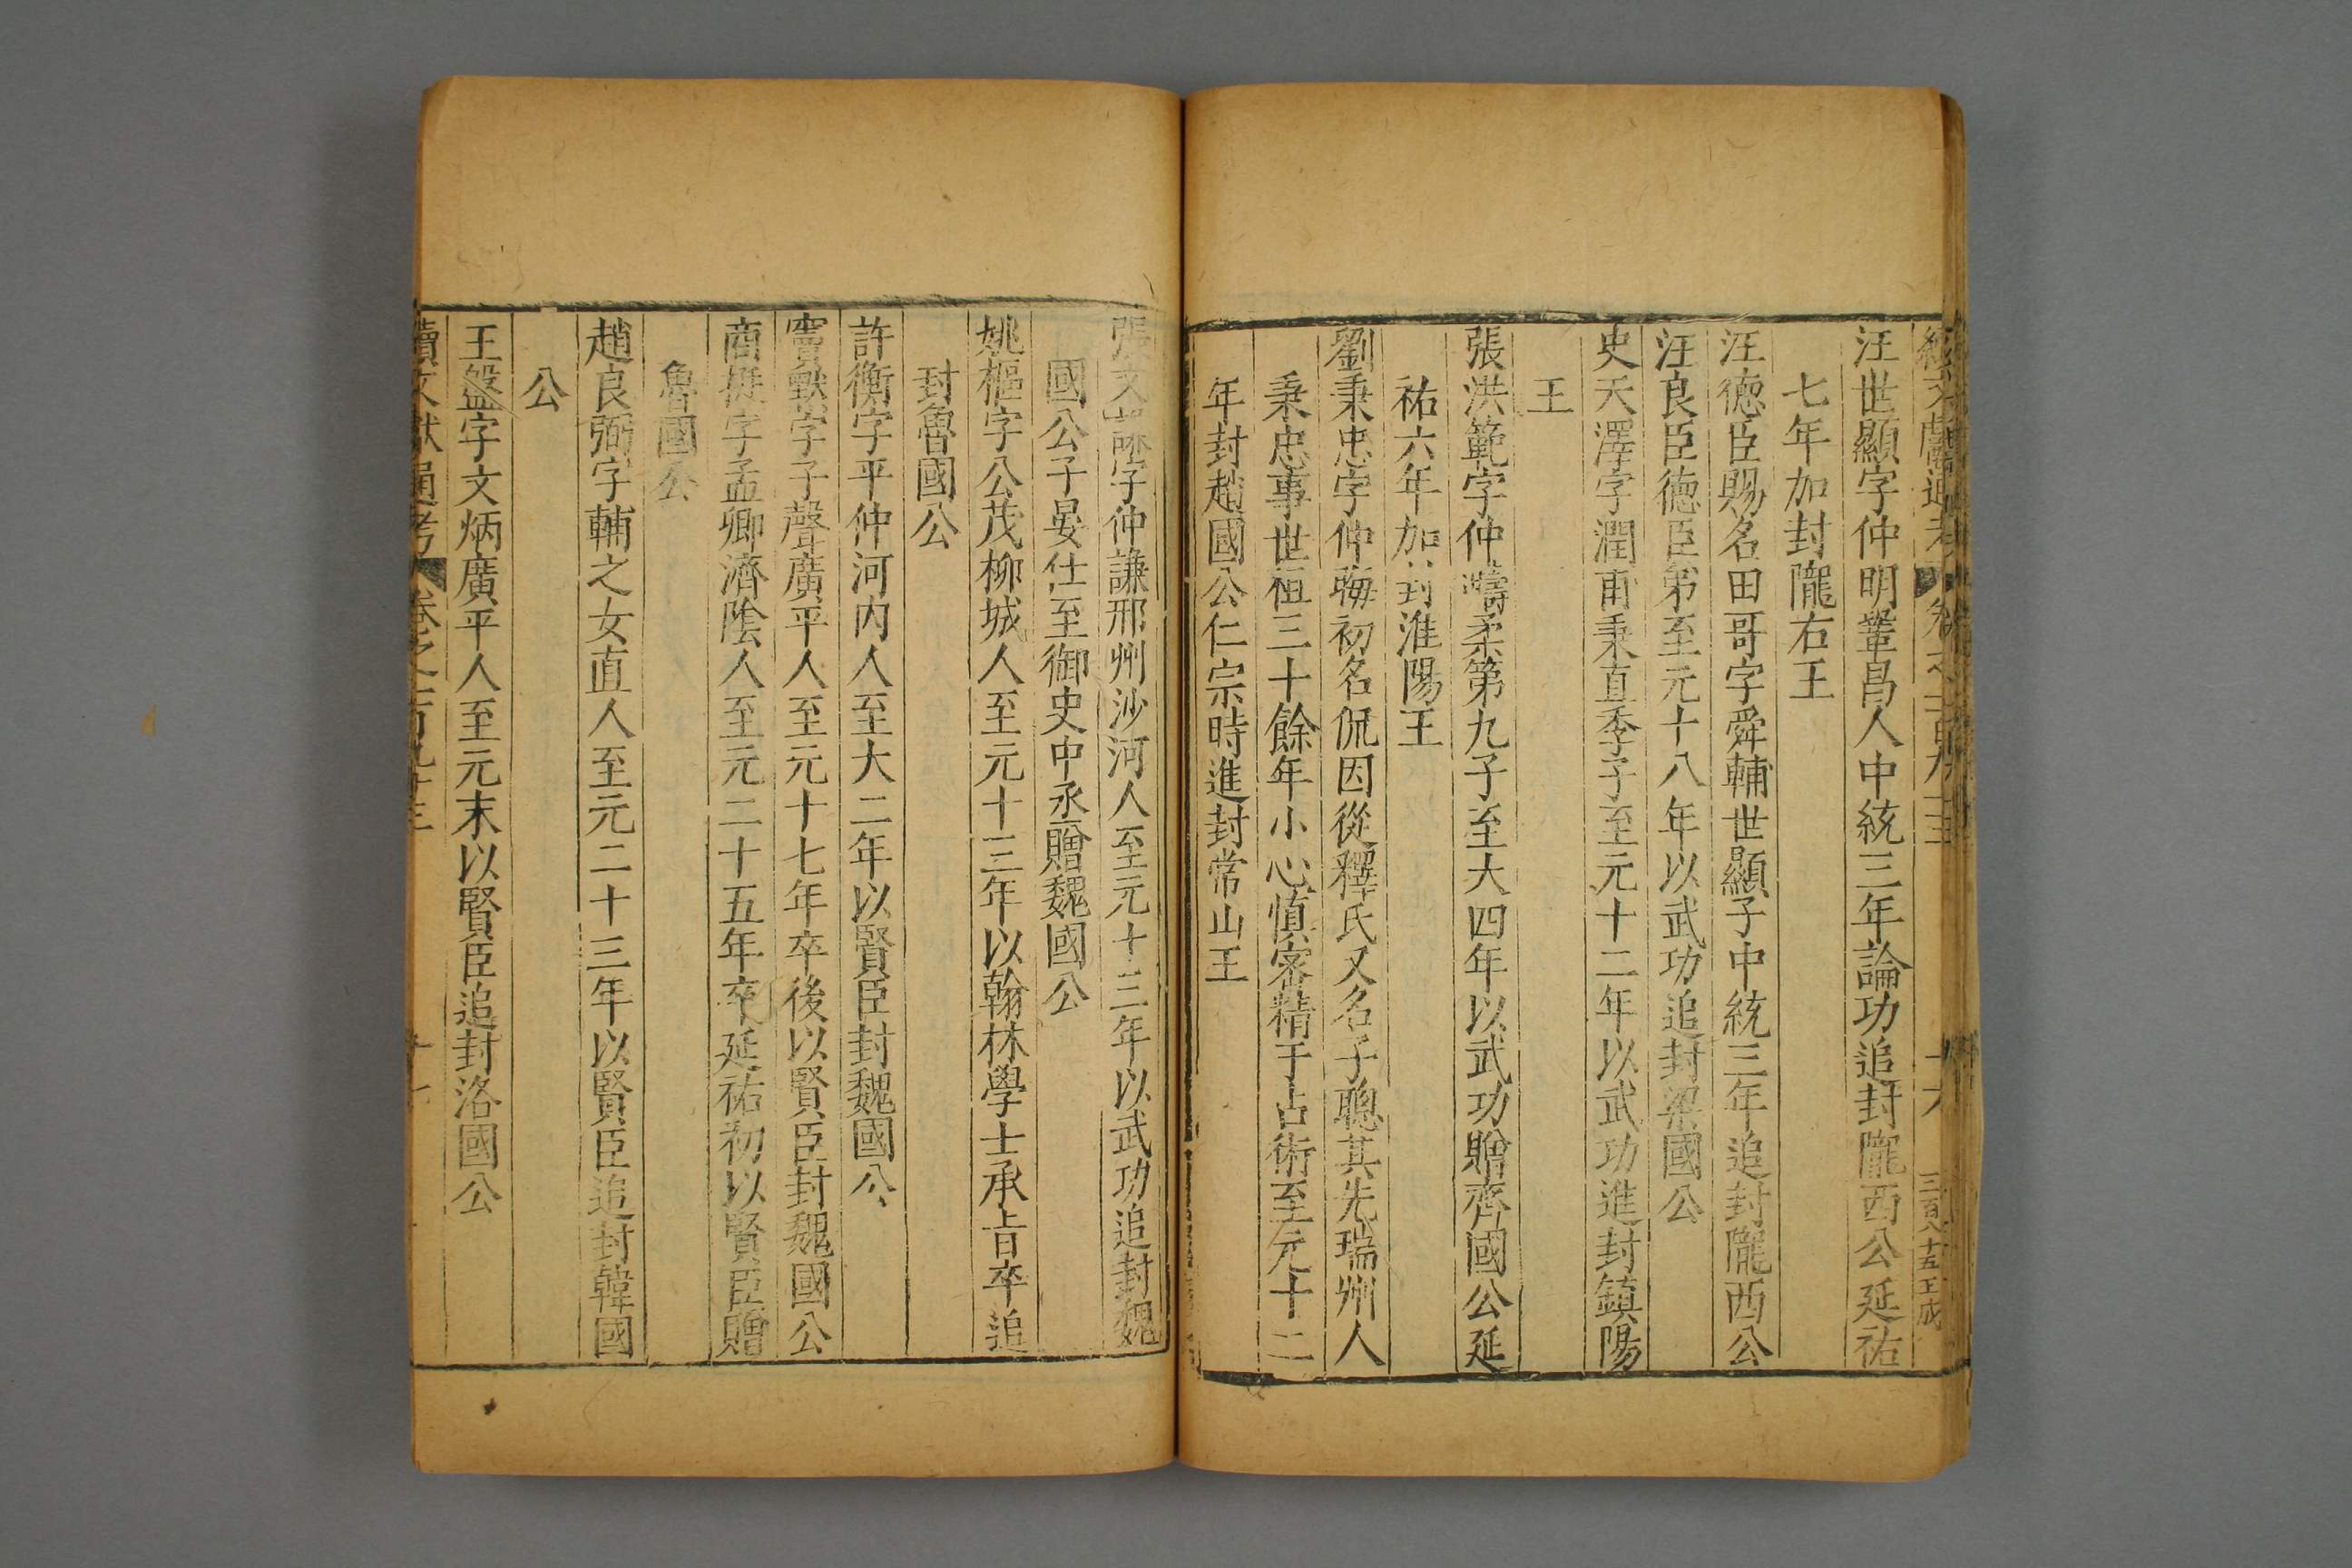 續文獻通考 卷之一百九十三 十六 三百八十五 王成
汪世顯字仲明鞏昌人中統三年論功追封隴西公延祐
七年加封隴右王
汪德臣賜名田哥字舜輔世顯子中統三年追封隴西公
汪良臣德臣第至元十八年以武功追封梁國公
史天澤字潤甫秉直季子至元十二年以武功進封鎮陽
王
張洪範字仲疇柔第九子至大四年以武功贈齊國公延
祐六年加封淮陽王
劉秉忠字仲晦初名侃因從釋氏又名子聰其先瑞州人
秉忠事世祖三十餘年小心慎密精于占術至元十二
年封趙國公仁宗時進封常山王
張文謙字仲謙邢州沙河人至元十三年以武功追封魏
國公子晏仕至御史中丞贈魏國公
姚樞字公茂柳城人至元十三年以翰林學士承旨卒追
封魯國公
許衡字平仲河内人至大二年以賢臣封魏國公
竇默字子聲廣平人至元十七年卒後以賢臣封魏國公
商挺字孟卿濟陰人至元二十五年卒延祐初以賢臣贈
魯國公
趙良弼字輔之女直人至元二十三年以賢臣追封韓國
公
王盤字文炳廣平人至元末以賢臣追封洛國公
續文獻通考 卷之一百九十三 十七